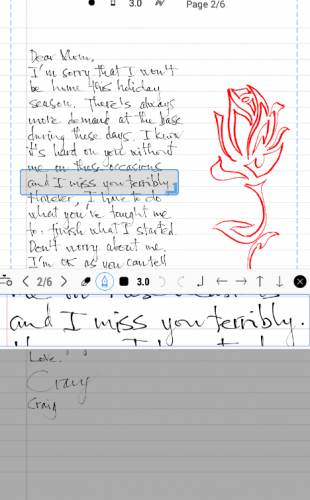 3.0
Page 2/6
Dear Mom,
I'm sorry that I won't
be home this holiday
season. There's always
more demand at the base
during these days. I know
it's hard on you without
me on these occasions
and I miss you terribly.
However, I have to do
what you've taught me
to. finish what I started
Don't worry about me.
I'm OK as you can tell
2/6
3.0
me on these occasions
and I miss you terribly.
Love.
Craig
Craig